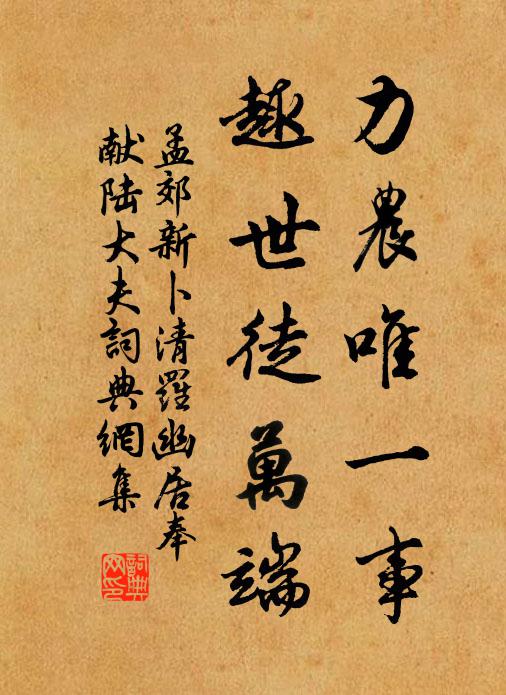 力農唯一事
趣世徒萬端
孟郊新卜清羅幽居奉
献陆大夫詞典網集
詞典
网印